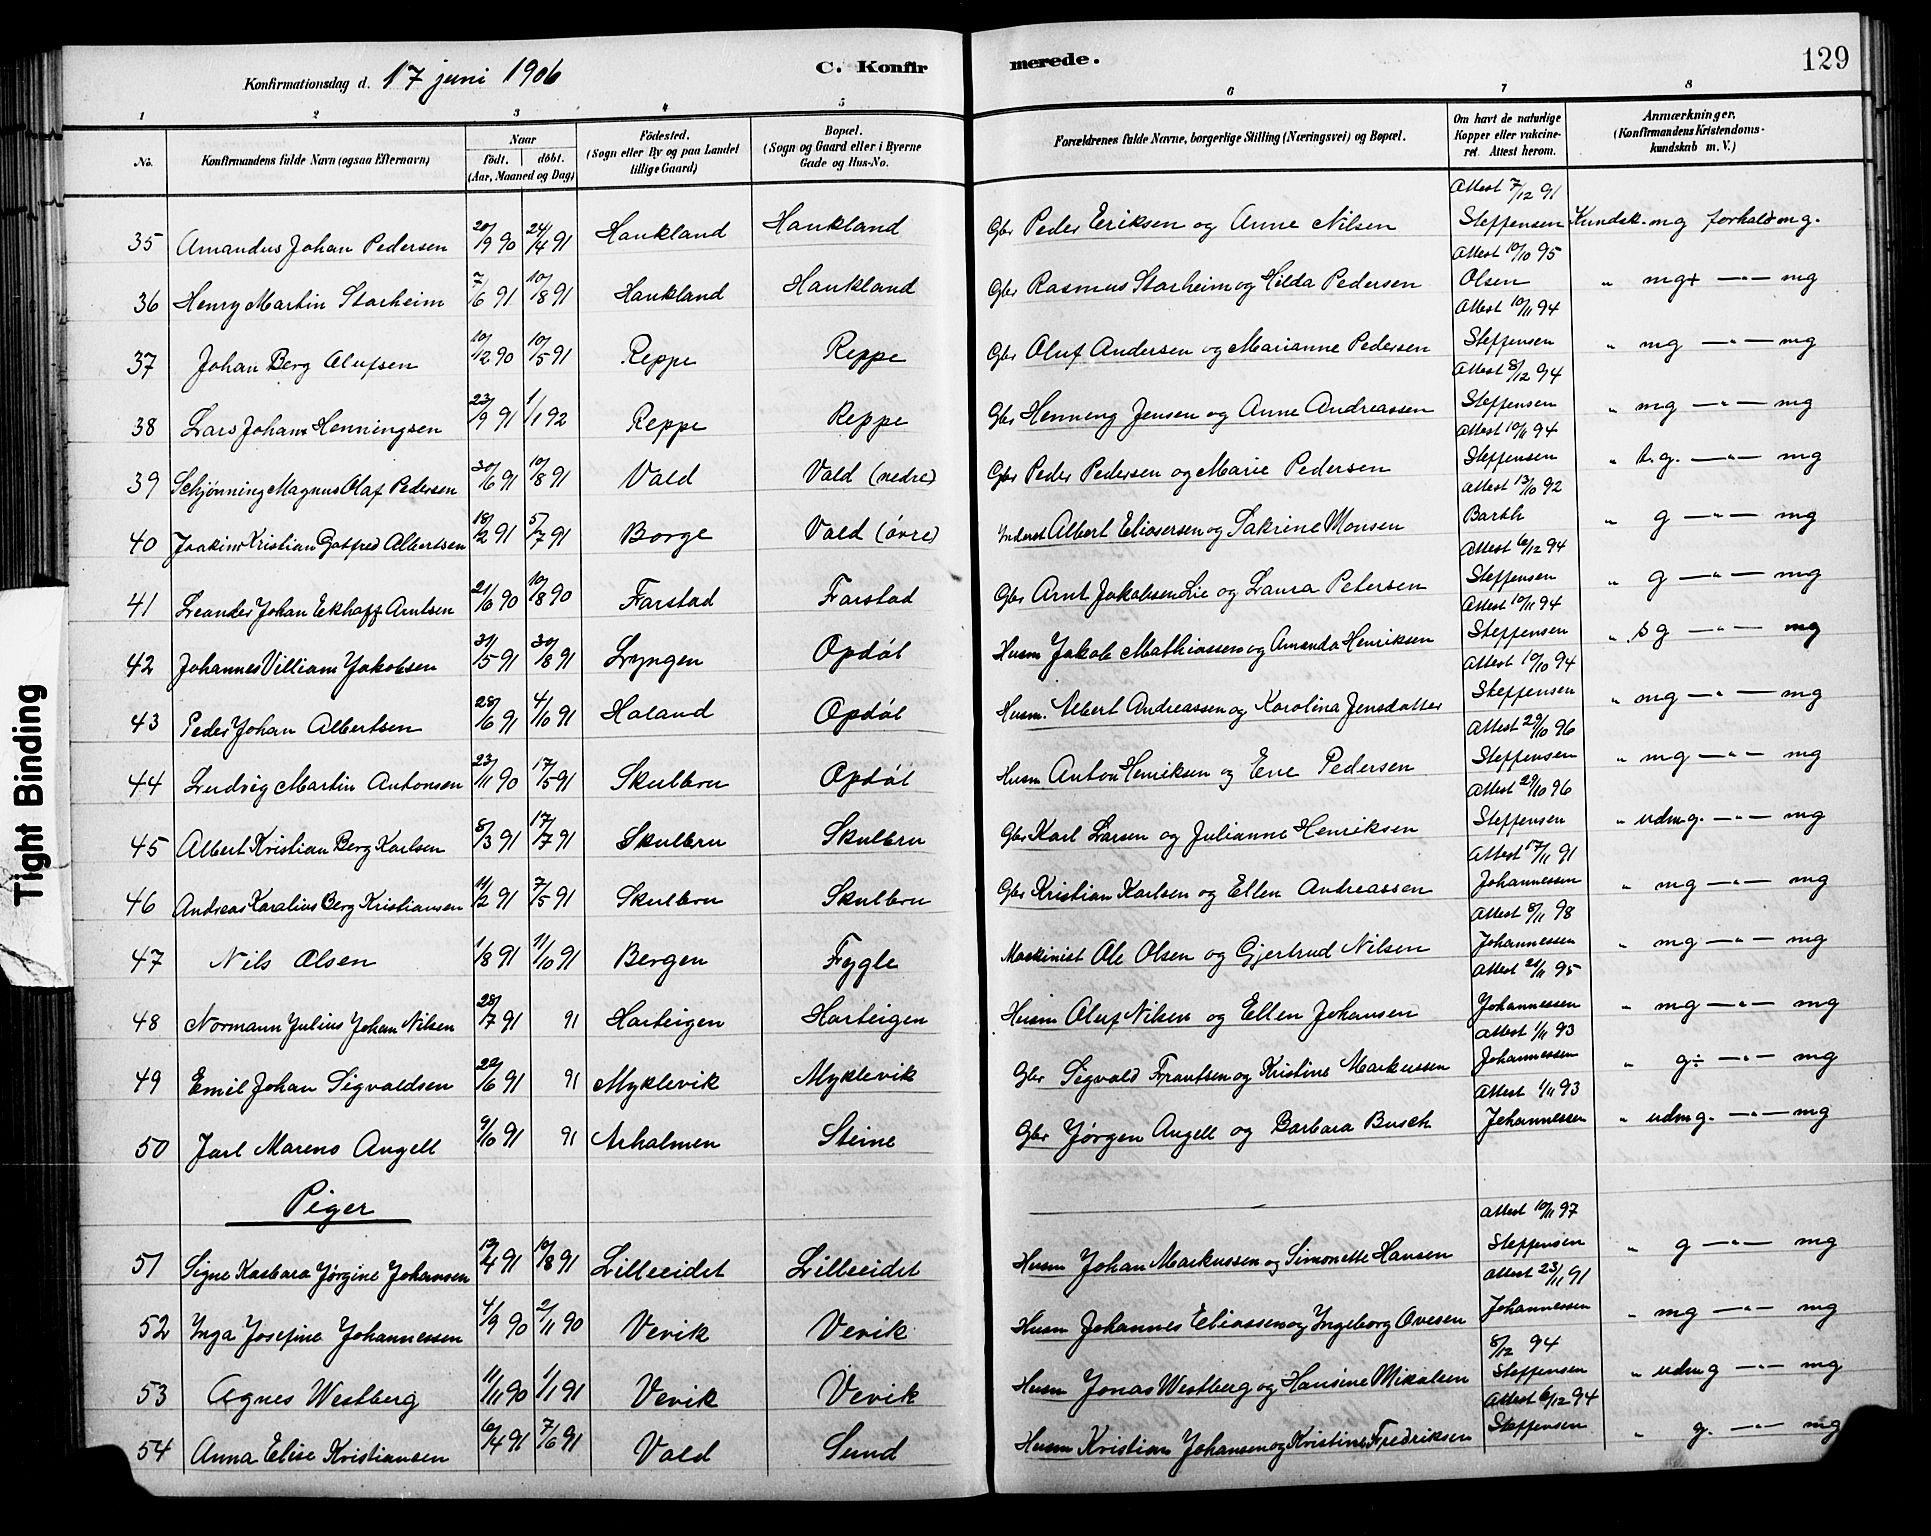 Konfirmationsdag d. 17 juni 1906 C. Konfirmerede. 129
1 2 3 4 5 6 7 8
No. Konfirmandens fulde Navn (ogsaa Efternavn) Naar født. døbt. (Aar, Maaned og Dag) Fødested. (Sogn eller By og paa Landet tillige Gaard) Bopæl. (Sogn og Gaard eller i Byerne Gade og Hus-No. Forældrenes fulde Navne, borgerlige Stilling (Næringsvei) og Bopæl. Om havt de naturlige Kopper eller vakcineret. Attest herom. Anmærkninger. (Konfirmandens Kristendomskundskab m. V.)
35 Amandus Johan Pedersen 20/9 90 24/4 91 Haukland Haukland Gbr Peder Eriksen og Anne Nilsen Attest 7/12 91 Steffensen Kundsk. mg forhold mg.
36 Henry Martin Starheim 7/6 91 10/8 91 Haukland Haukland Gbr Rasmus Starheim og Hilda Pedersen Attest 10/10 95 Olsen " mg+ —"— mg
37 Johan Berg Olufsen 10/12 90 10/5 91 Reppe Reppe Gbr Oluf Andersen og Marianne Pedersen Attest 10/11 94 Steffensen " mg —"— mg
38 Lars Johan Henningsen 23/9 91 1/1 92 Reppe Reppe Gbr Henning Jensen og Anne Andreassen Attest 8/12 94 Steffensen " mg —"— mg
39 Schjønning Magnus Olaf Pedersen 30/6 91 10/8 91 Vald Vald (nedre) Gbr Peder Pedersen og Marie Pedersen Attest 10/11 94 Steffensen " t.g. —"— mg
40 Joakim Kristian Gotfred Albertsen 18/2 91 5/7 91 Borge Vald (øvre) Inderst Albert Eliasersen og Sakrine Monsen Attest 13/10 92 Barth " g —"— mg
41 Leander Johan Eckhoff Arntsen 21/6 90 10/8 90 Farstad Farstad Gbr Arnt Jakobsen Lie og Laura Petersen Attest 6/12 94 Steffensen " g —"— mg
42 Johannes Villiam Jakobsen 31/5 91 30/8 91 Lyngen Opdøl Husm Jakob Mathiassen og Amanda Henriksen Attest 10/11 94 Steffensen " g —"— mg
43 Peder Johan Albertsen 28/6 91 4/10 91 Holand Opdøl Husm. Albert Andreassen og Karolina Jensdatter Attest 10/10 94 Steffensen " mg —"— mg
44 Ludvig Martin Antonsen 23/11 90 17/5 91 Skulbru Opdøl Husm Anton Henriksen og Ene Pedersen Attest 29/10 96 Steffensen " mg —"— mg
45 Albert Kristian Berg Karlsen 8/3 91 17/7 91 Skulbru Skulbru Gbr Karl Larsen og Julianne Henriksen Attest 29/10 96 Steffensen " udm.g. —"— mg
46 Andreas Karelius Berg Kristiansen 11/2 91 7/5 91 Skulbru Skulbru Gbr Kristian Karlsen og Ellen Andreassen Attest 17/11 91 Johannessen " mg —"— mg
47 Nils Olsen 1/8 91 11/10 91 Bergen Fygle Maskinist Ole Olsen og Gjertrud Nilsen Attest 8/11 98 Johannessen " mg —"— mg
48 Normann Julius Johan Nilsen 28/7 91 91 Harteigen Harteigen Husm Oluf Nilsen og Ellen Johansen Attest 21/11 95 Johannessen " mg —"— mg
49 Emil Johan Sigvaldsen 22/6 91 91 Myklevik Myklevik Gbr Sigvald Frantsen og Kristine Markussen Attest 1/11 93 Johannessen " g÷ —"— mg
50 Jarl Marens Angell 9/10 91 91 Arholmen Steine Gbr Jørgen Angell og Barbara Busch Attest 1/11 93 Johannessen " udm g. —"— mg
Piger
51 Signe Kasbara Jørgine Johansen 13/4 91 10/8 91 Lilleeidet Lilleeidet Husm Johan Markussen og Simonette Hansen Attest 10/11 97 Steffensen " g —"— mg
52 Inga Josefine Johannessen 4/9 90 2/11 90 Vevik Vevik Husm Johannes Eliassen og Ingeborg Ovesen Attest 23/11 91 Johannessen " mg —"— mg
53 Agnes Westberg 11/11 90 1/1 91 Vevik Vevik Husm Jonas Westberg og Hansine Mikalsen 8/12 94 Steffensen " udm g —"— mg
54 Anna Elise Kristiansen 6/4 91 7/6 91 Vald Sund Husm Kristian Johansen og Kristine Fredriksen Attest 6/12 94 Steffensen " g. —"— mg
Tight Binding